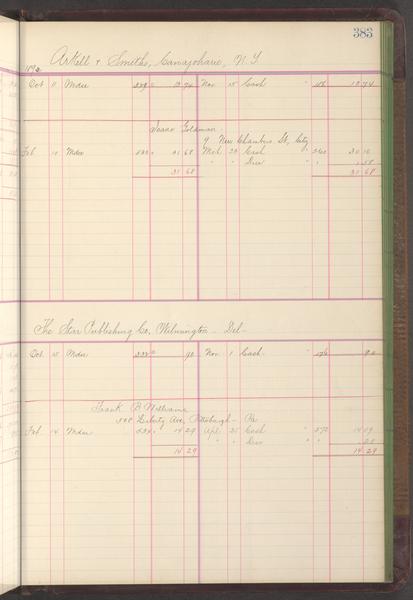 383
Arkell & Smiths, Canajoharie, N. Y.
Oct 11 Mdse 12 74 Nov 15 Cash 12 74
Isaac Goldman
9 New Chambers St, City
Feb 10 Mdse 31 68 Mch 23 Cash 30 10
" " Disc " 1 58
31 68 31 68
The Star Publishing Co, Wilmington - Del -
Oct 15 Mdse 90 Nov 1 Cash 90
Frank B Williams
Liberty Ave, Pittsburgh - Pa
Feb 14 Mdse 14 29 Apl 25 Cash 14 09
" " Disc "
14 29 14 29